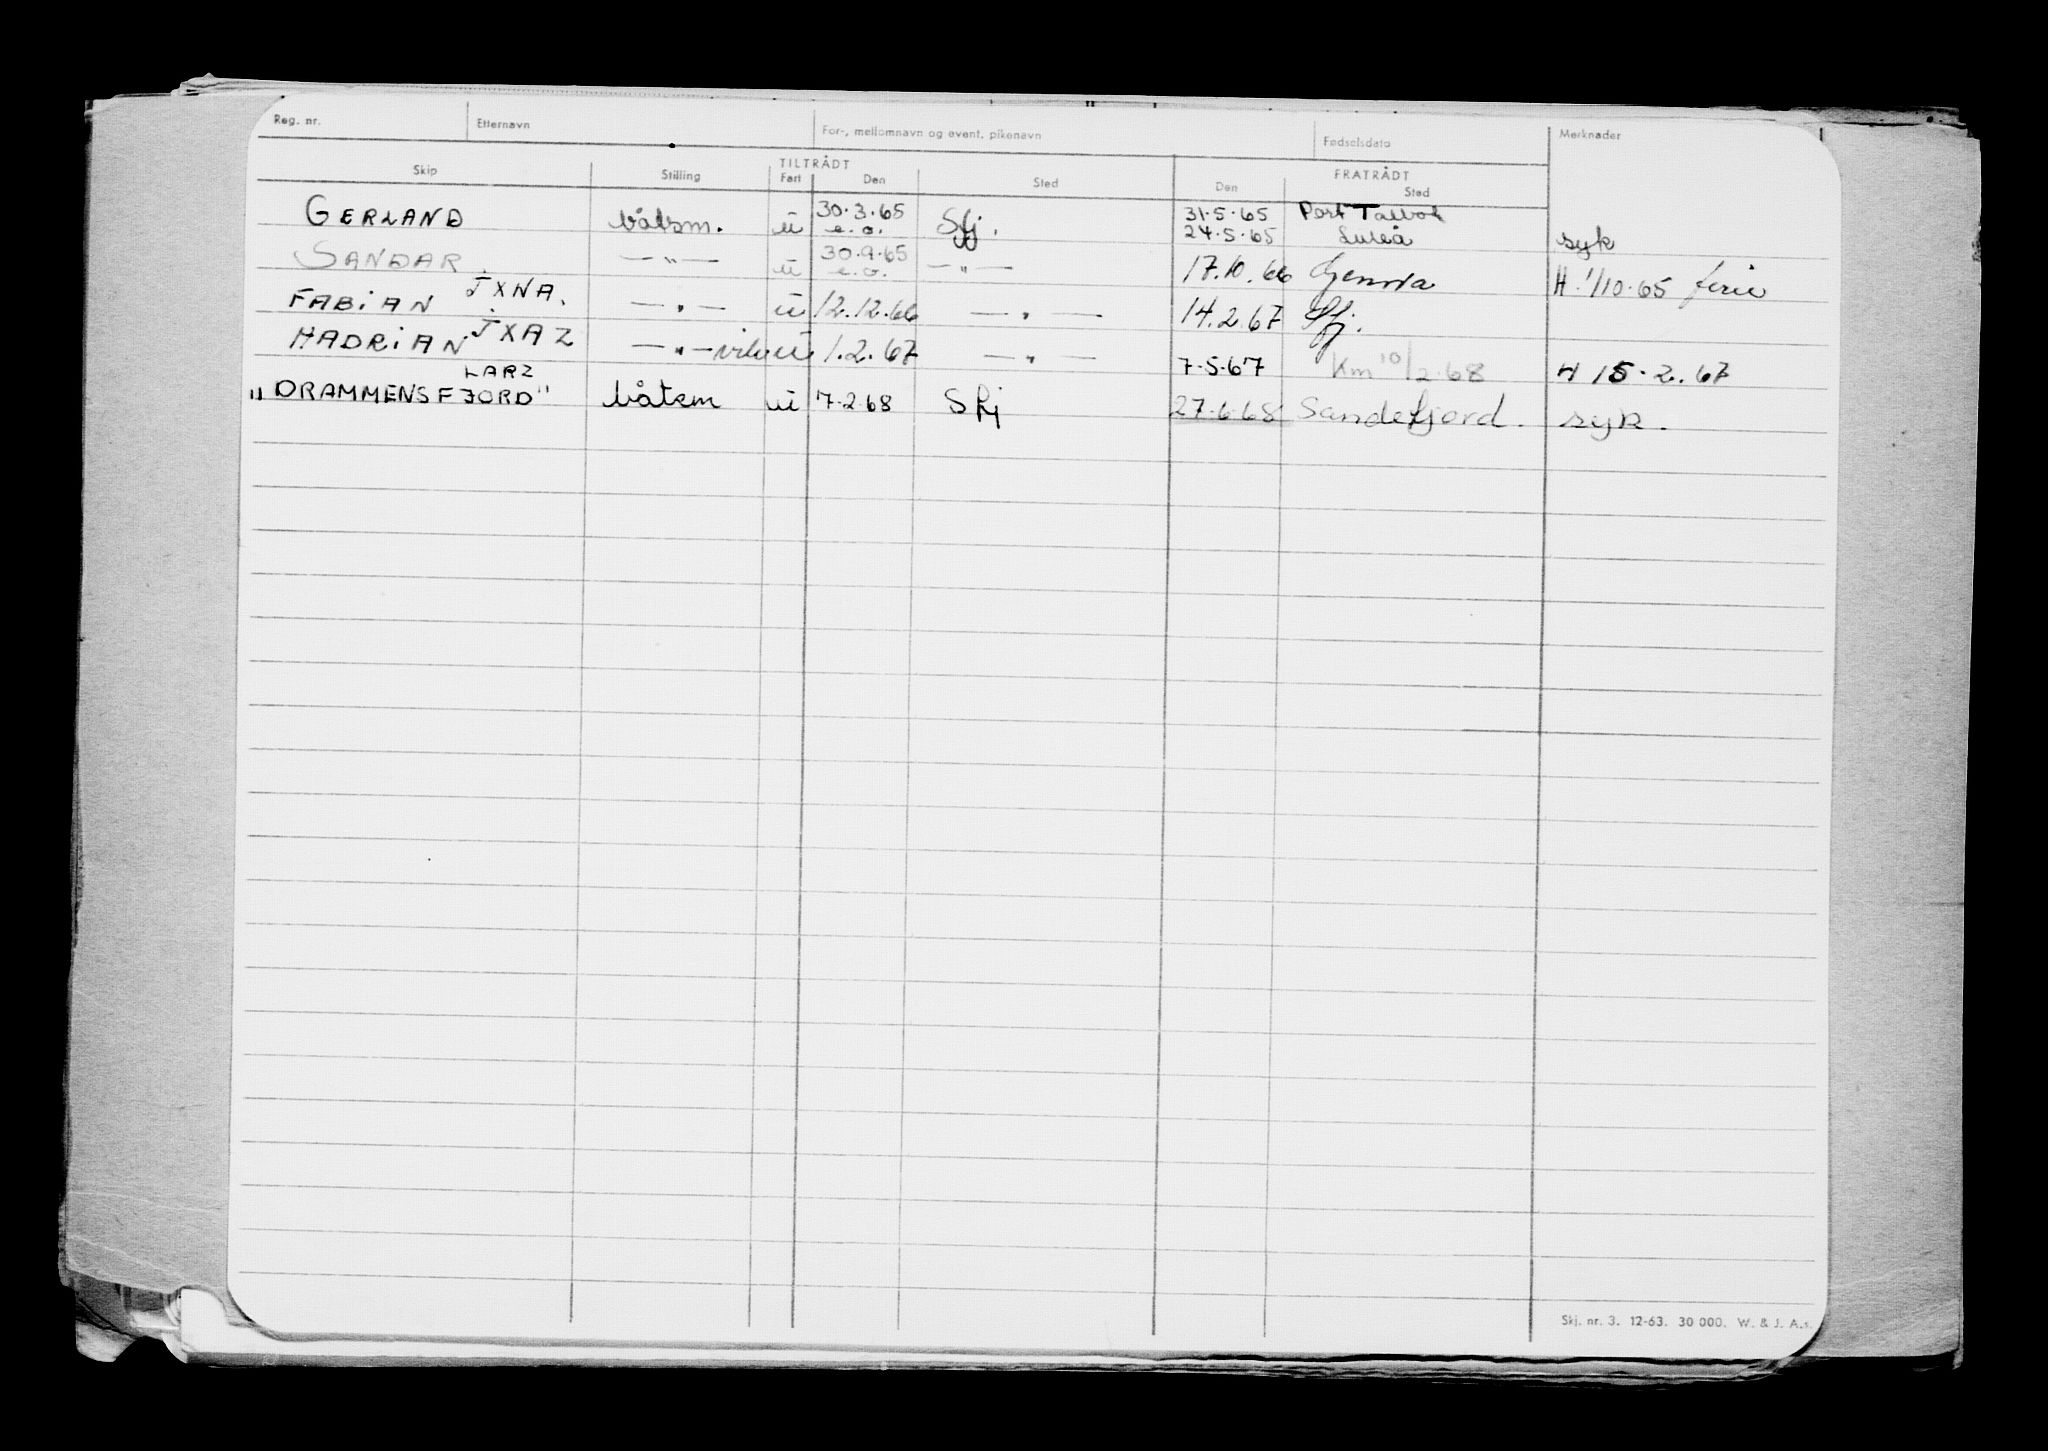 Reg. nr. Etternavn For-, mellomnavn og event. pikenavn Fødselsdato Merknader
TILTRÅDT FRATRÅDT
Skip Stilling Fart Den Sted Den Sted
GERLAND båtsm. u 30.3.65 Sfj. 31.5.65 Port Talbot
e.o. 24.5.65 Luleå syk
SANDAR — " — u 30.9.65 — " — 17.10.66 Genova H. 1/10.65 ferie
e.o.
FABIAN JXNA. — " — u 12.12.66 — " — 14.2.67 Sfj.
HADRIAN JXAZ — " — u 1.2.67 — " — 7.5.67 Km 10/2.68 H 15.2.67
LARZ
"DRAMMENSFJORD" båtsm u 7.2.68 Sfj 27.6.68 Sandefjord. syk.
Skj. nr. 3. 12-63. 30 000. W. & J. A.s.